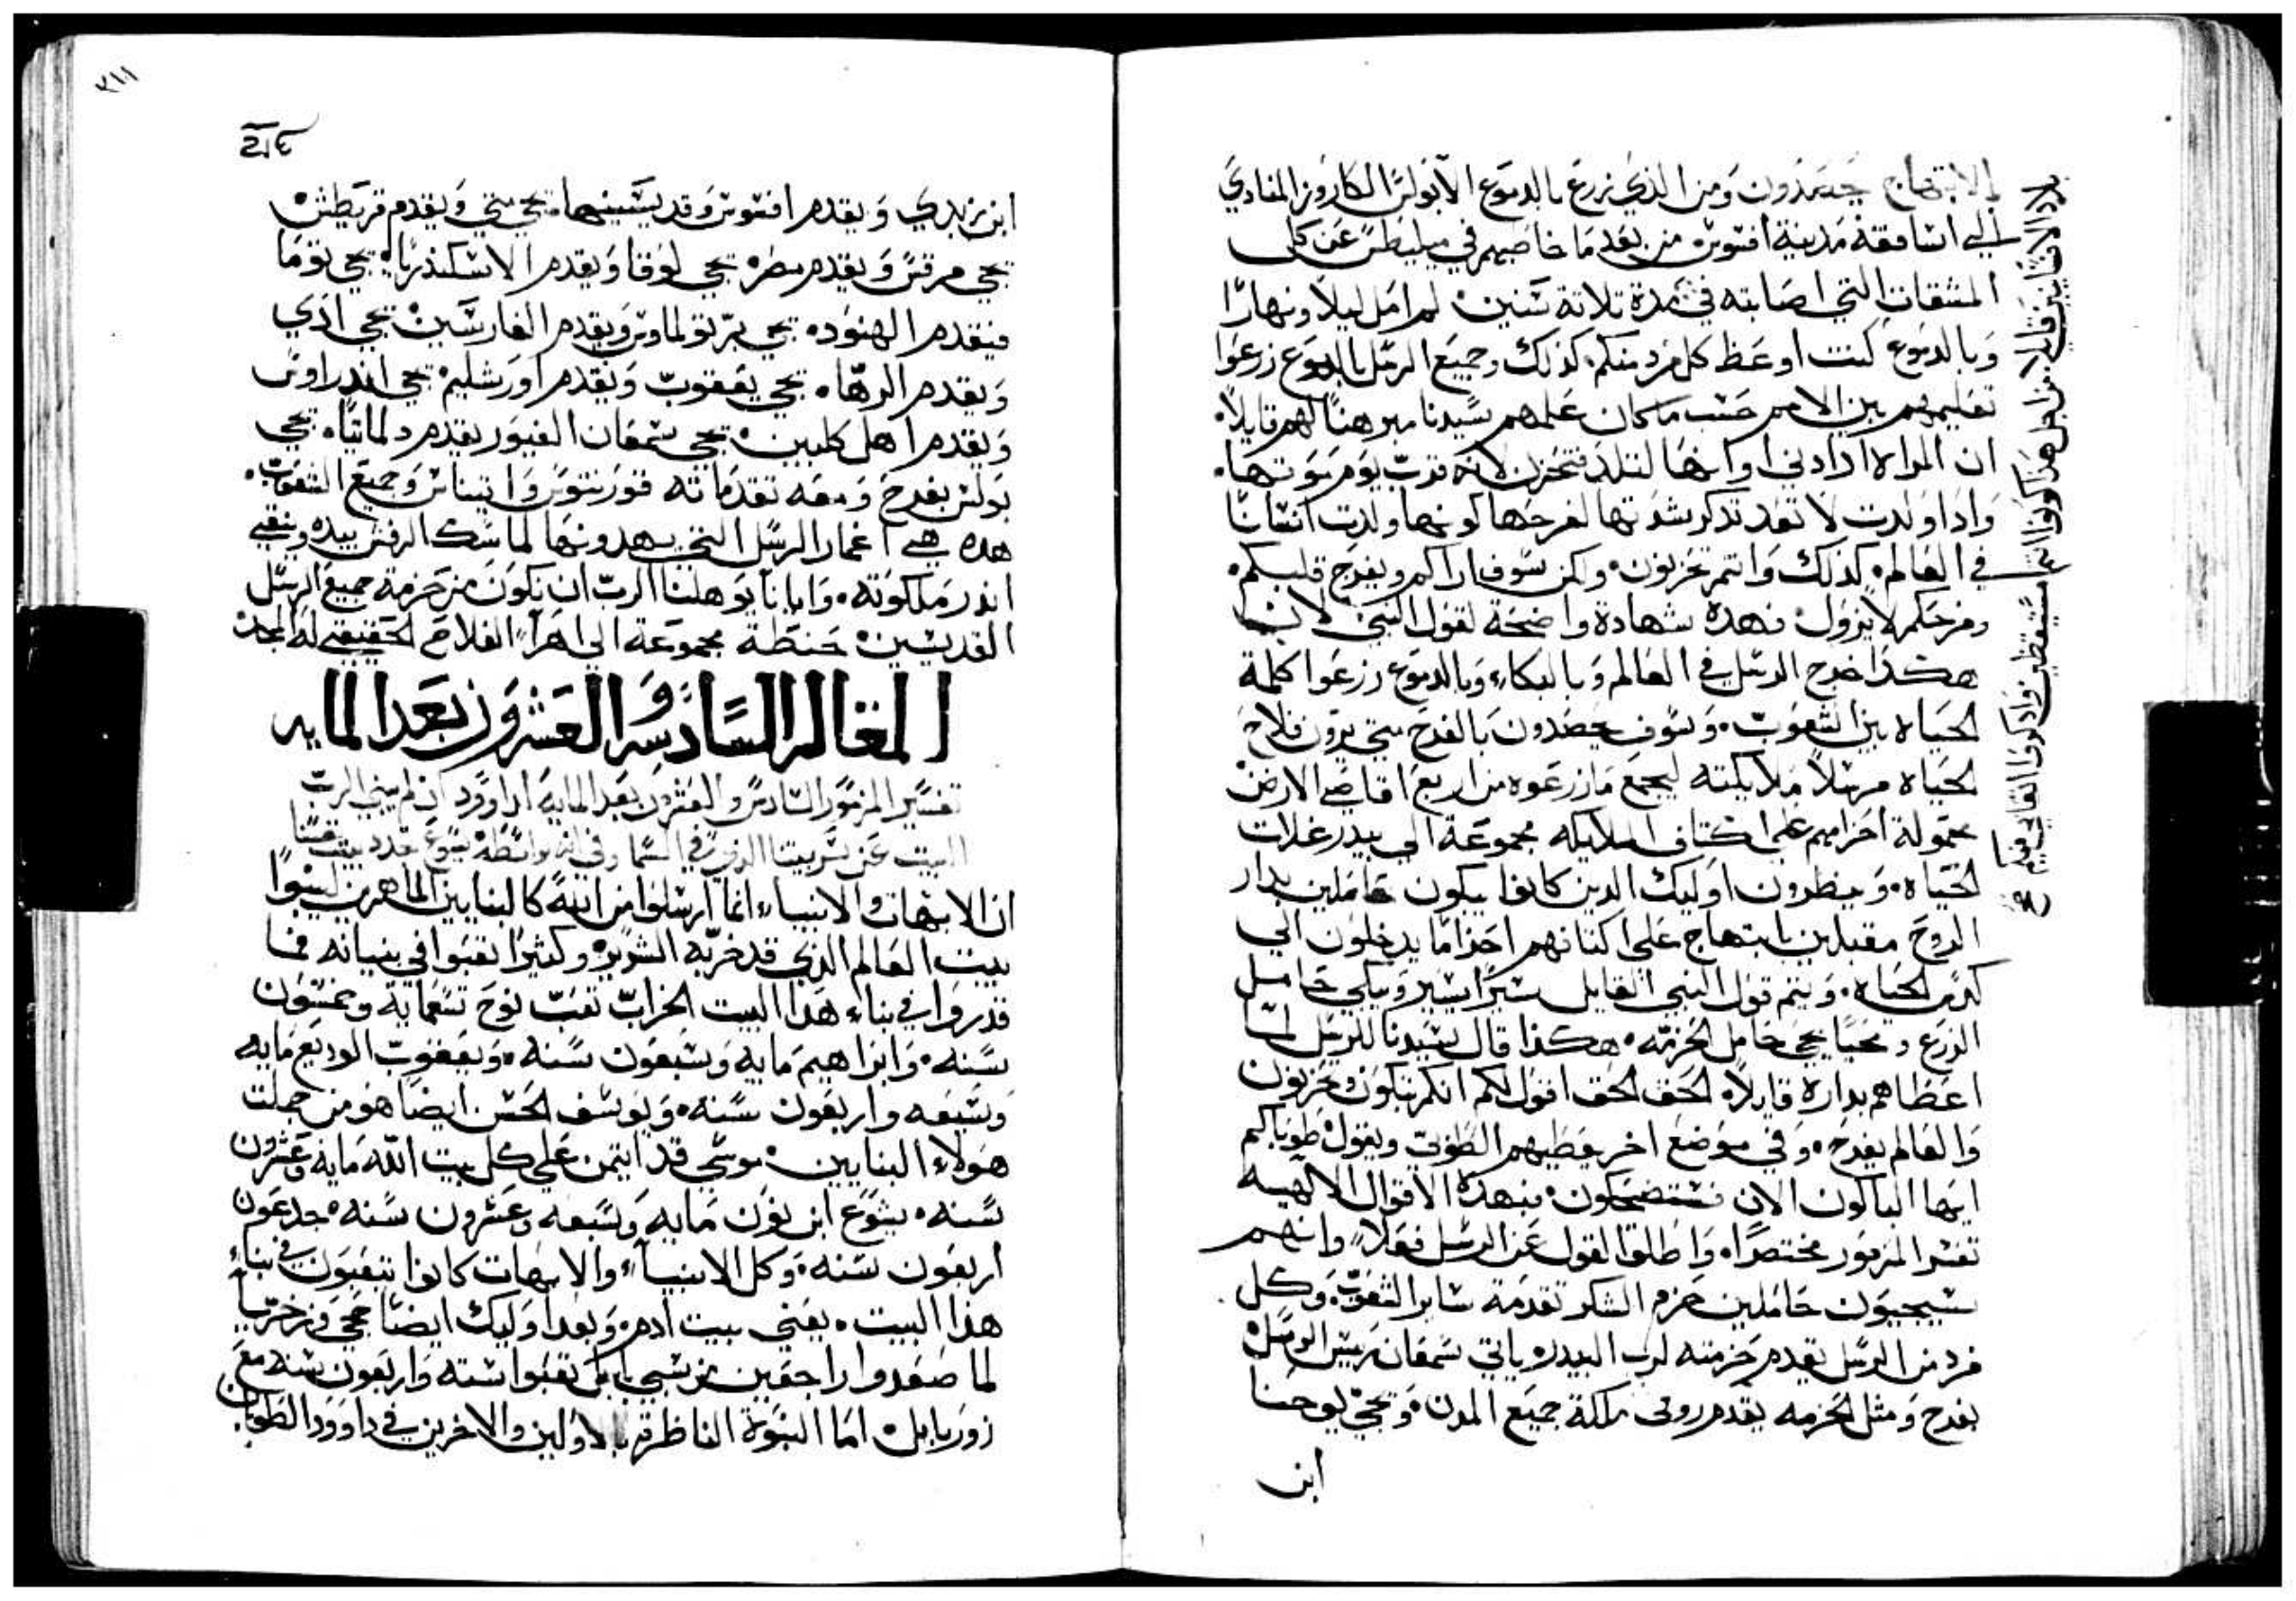 بالابتهاج يحصدون ومن الذي زرع بالدموع الا بولس الكاروز المنادي
الي اساقفة مدينة افسوس من بعد ما خاصهم في ميليطس عن كل
المشقات التي اصابته في مدة تلاتة سنين لم امل ليلا ونهارا
وبالدموع كنت اوعظ كل فرد منكم كذلك وجميع الرسل بالدموع زرعوا
تعليمهم بين الامم حسب ما كان علمهم سيدنا مبرهنا لهم قايلا
ان المراه ادا دني اوانها لتلد فتحزن لانه قرب يوم موتها
وادا ولدت لا تعد تدكر شدتها لفرحها كونها ولدت انسانا
في العالم كذلك وانتم تحزنون ولكن سوف اراكم ويفرح قلبكم
وفرحكم لا يزول فهده شهادة واضحة لقول النبي لانه
هكذا خرج الرسل في العالم وبالبكاء وبالدموع زرعوا كلمة
الحياه بين الشعوب وسوف يحصدون بالفرح متي يرون فلاح
الحياه مرسلا ملايكته ليجمع ما زرعوه من اربع اقاصي الارض
محمولة احزامهم علي اكتاف الملايكه مجموعة الي بيدر غلات
الحياه وينظرون اوليك الدين كانوا يبكون حاملين بدار
الروح مقبلين بابتهاج علي اكتافهم احزاما يدخلون الي
كدس الحياه ويتم قول النبي القايل سيرا يسير ويبكي حامل
الزرع ومجيا يجي حامل الحزمه هكذا قال سيدنا للرسل لما
اعطاهم بداره قايلا الحق الحق اقول لكم انكم تبكون وتحزنون
والعالم يفرح وفي موضع اخر يعطيهم الطوبي ويقول طوباكم
ايها الباكون الان فستضحكون فبهده الاقوال الالهيه
تفسر المزمور مختصرا واطلق القول عن الرسل فعلا وانهم
سيجيون حاملين حزم الشكر تقدمة ساير الشعوب وكل
فرد من الرسل يقدم حزمته لرب البيدر ياتي سمعان ريس الرسل
بفرح ومثل الحزمه يقدم رومي ملكة جميع المدن ويجي يوحنا
ابن
ابن زبدي ويقدم افسوس وقد يشبهها يجي متي ويقدم
يجي مرقس ويقدم مصر يجي لوقا ويقدم الاسكندريا يجي توما
فيقدم الهنود يجي برتولماوس ويقدم الفارسين يجي ادي
ويقدم الرها يجي يعقوب ويقدم اورشليم يجي اندراوس
ويقدم اهل كلبين يجي سمعان الغيور يقدم دلماتيا يجي
بولس بفرح ومعه تقدماته قورنتوس واتيناس وجميع الشعوب
هده هي اغمار الرسل التي يهدونها لماسك الرفش بيده وينقي
اندر ملكوته وايانا يوهلنا الرب ان نكون من حزمة جميع الرسل
القديسين حنطة مجموعة الي اهرا الفلاح الحقيقي له المجد
المقاله السادسه والعشرون بعد المايه
تفسير المزمور السادس والعشرون بعد المايه لداوود ان لم يبني الرب
البيت
ان الابهات والانبياء انما ارسلوا من الله كالبنايين الماهرين ليبنوا
بيت العالم الذي قد خربه الشرير وكثيرا تعبوا في بنيانه فما
قدروا في بناء هذا البيت الخراب تعب نوح تسعماية وخمسون
سنه وابراهيم مايه وسبعون سنه ويعقوب الوديع مايه
وسبعه واربعون سنه ويوسف الحسن ايضا هو من جملت
هولاء البنايين موسي قد ايتمن علي كل بيت الله مايه وعشرون
سنه يشوع ابن نون مايه وسبعه وعشرون سنه جدعون
اربعون سنه وكل الانبياء والابهات كانوا يتعبون في بناء
هذا البيت يعني بيت ادم وبعد اوليك ايضا حجي وزخريا
لما صعدوا راجعين من سبي بابل تعبوا سته واربعون سنه مع
زوربابل اما النبوة الناظرة بالاولين والاخرين في داوود الطوبان